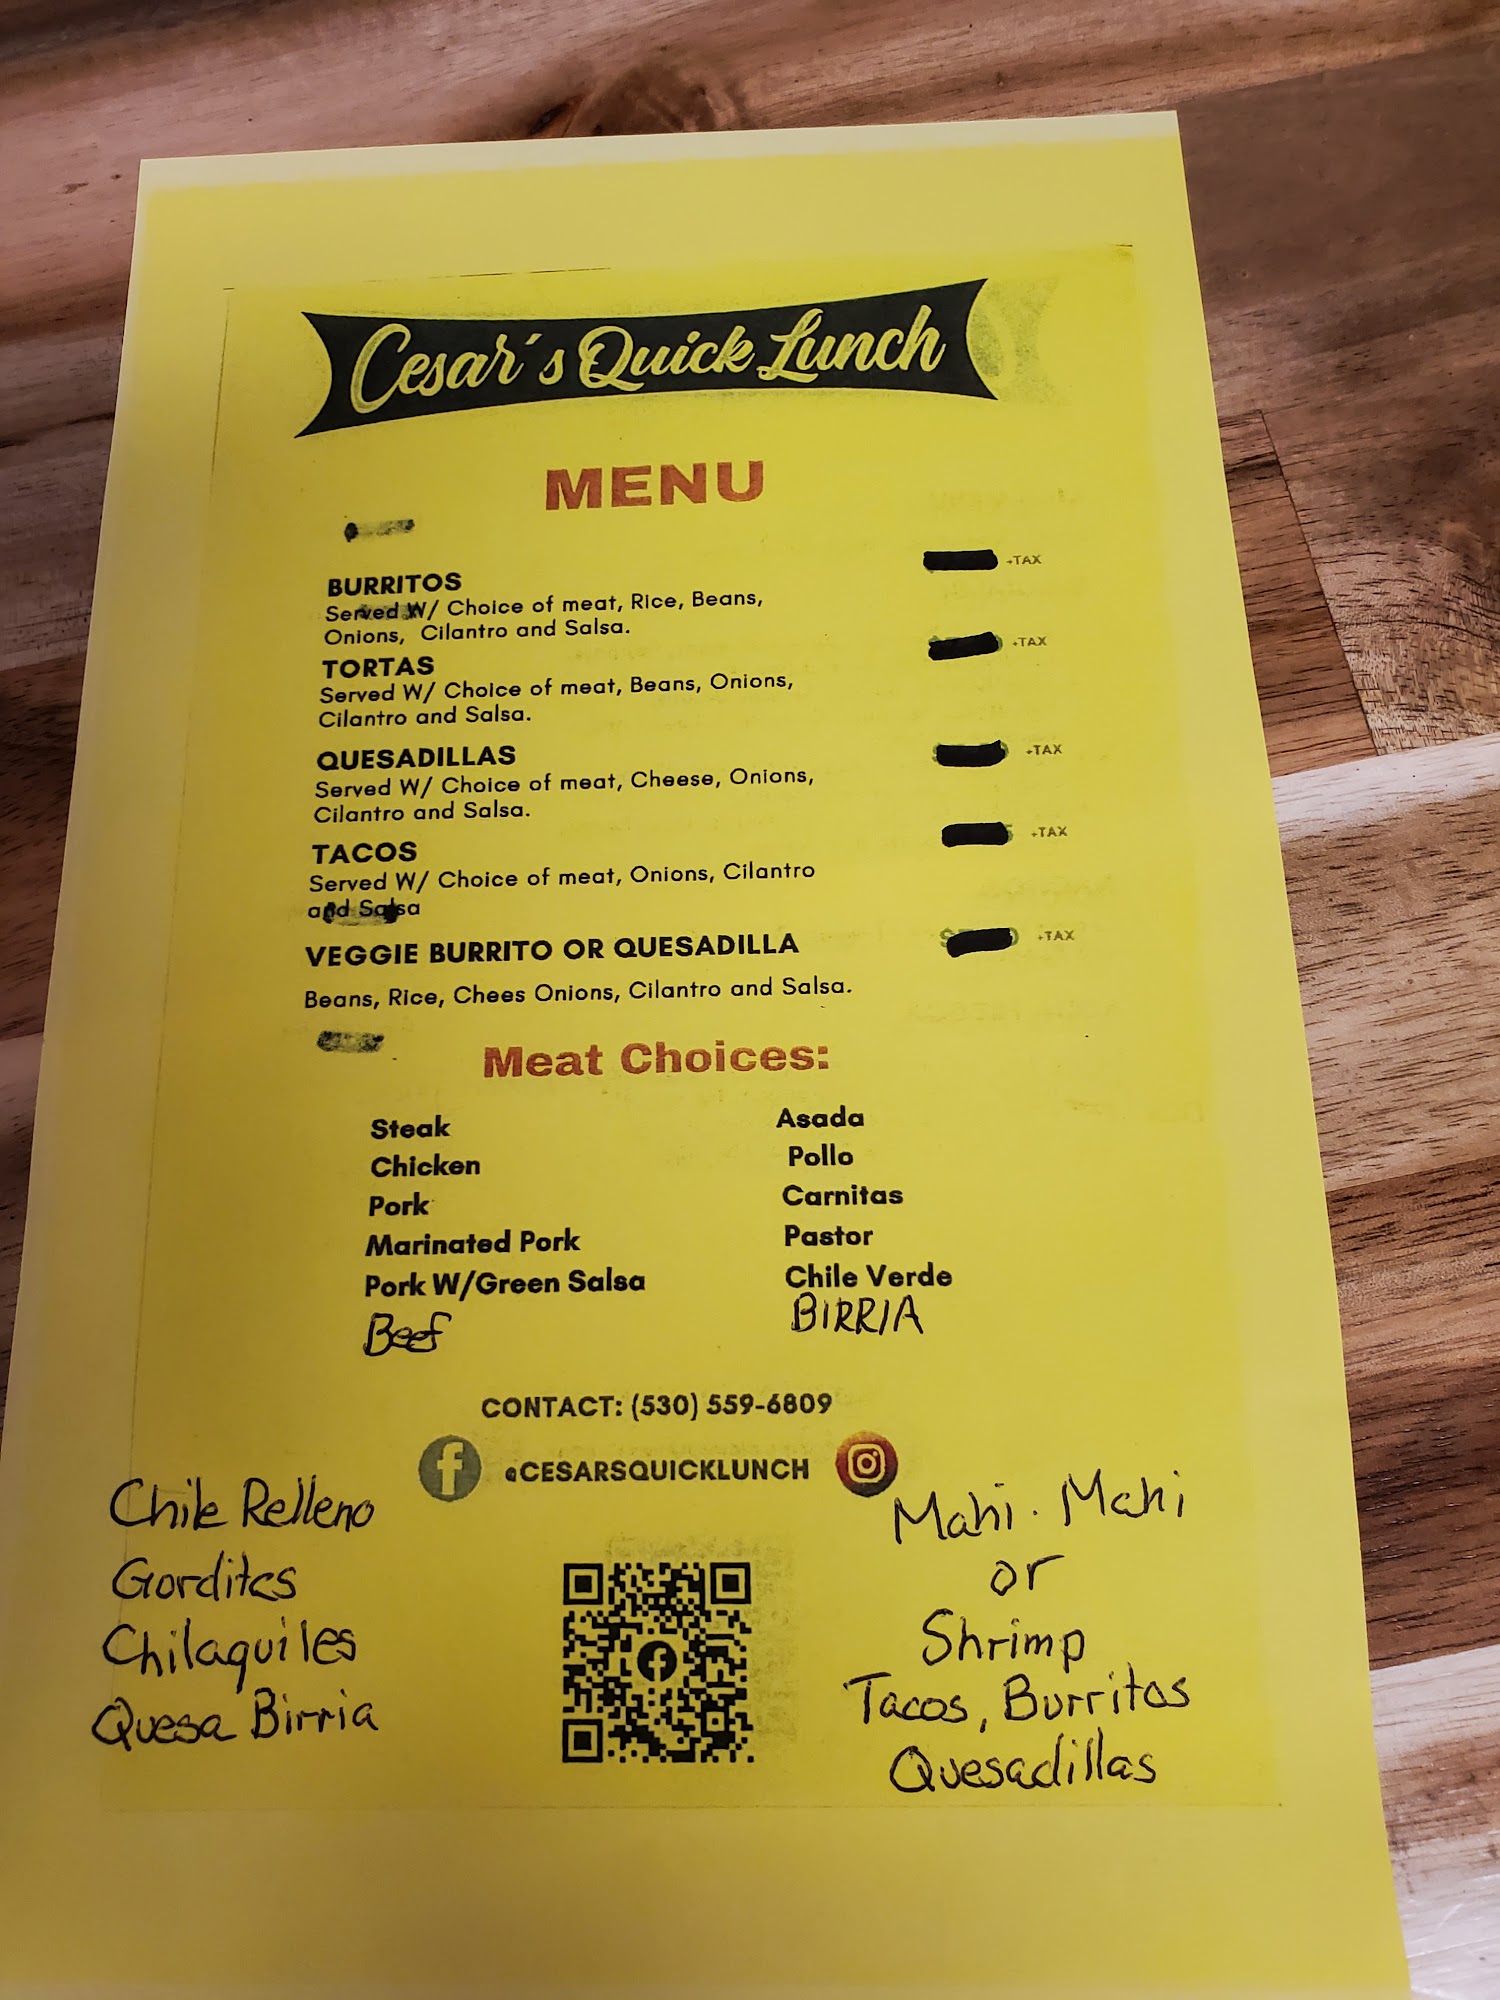 Cesar's Quick Lunch
MENU
BURRITOS +TAX
Served W/ Choice of meat, Rice, Beans,
Onions, Cilantro and Salsa.
TORTAS +TAX
Served W/ Choice of meat, Beans, Onions,
Cilantro and Salsa.
QUESADILLAS +TAX
Served W/ Choice of meat, Cheese, Onions,
Cilantro and Salsa.
TACOS +TAX
Served W/ Choice of meat, Onions, Cilantro
and Salsa
VEGGIE BURRITO OR QUESADILLA +TAX
Beans, Rice, Chees Onions, Cilantro and Salsa.
Meat Choices:
Steak Asada
Chicken Pollo
Pork Carnitas
Marinated Pork Pastor
Pork W/Green Salsa Chile Verde
Beef BIRRIA
CONTACT: (530) 559-6809
@CESARSQUICKLUNCH
Chile Relleno
Gorditas
Chilaquiles
Quesa Birria
Mahi. Mahi
or
Shrimp
Tacos, Burritos
Quesadillas